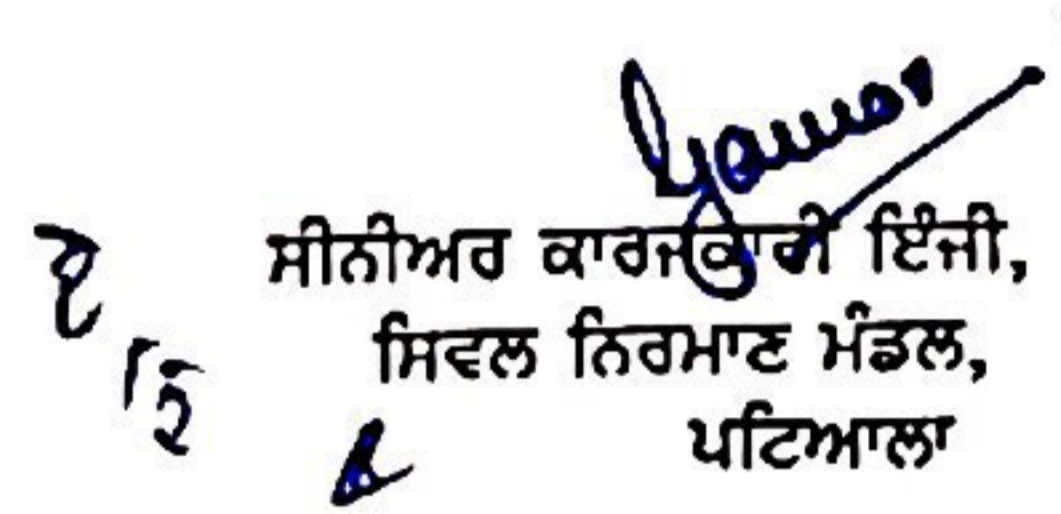 ਸੀਨੀਅਰ ਕਾਰਜਕਾਰੀ ਇੰਜੀ,
ਸਿਵਲ ਨਿਰਮਾਣ ਮੰਡਲ,
ਪਟਿਆਲਾ